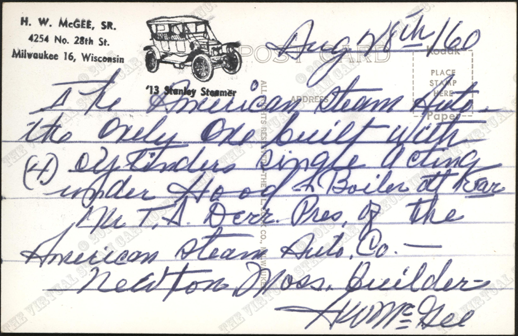 H. W. McGEE, SR.
4254 No. 28th St.
Milwaukee 16, Wisconsin
'13 Stanley Steamer
POST CARD
Aug 28th/60
Kodak
PLACE
STAMP
HERE
Paper
ADDRESS
The American Steam Auto.
the only one built with
(4) cylinders single acting
under Hood & Boiler at rear
Mr T. A. Derr. Pres. of the
American Steam Auto. Co. —
Newton, Mass. builder—
HW McGee